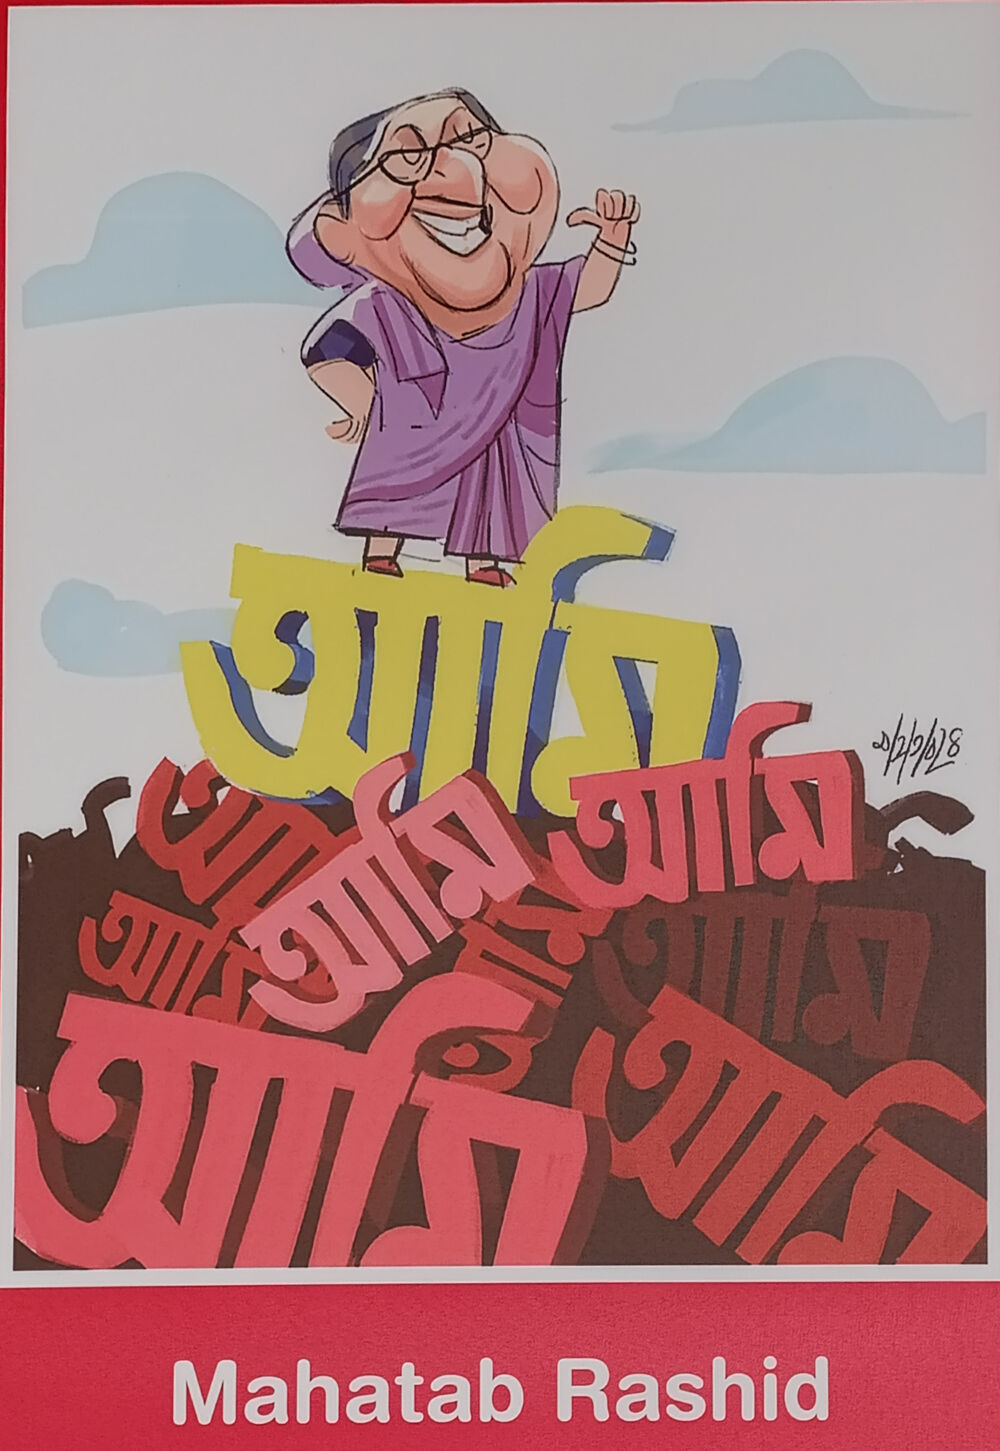 আমি
আমি
আমি
আমি
আমি
আমি
আমি
আমি
আমি
Mahatab Rashid